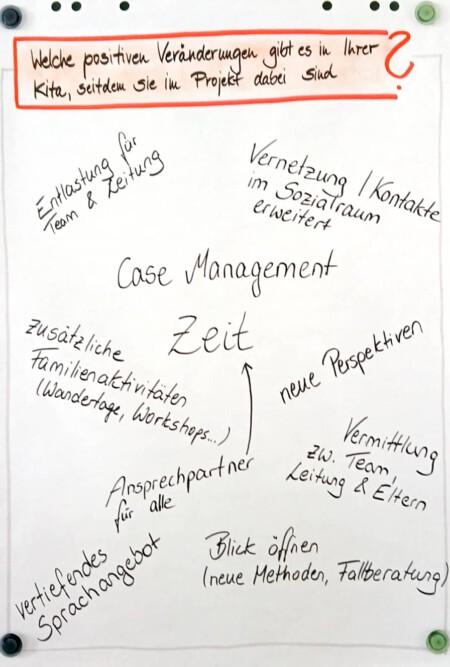 Welche positiven Veränderungen gibt es in Ihrer
Kita, seitdem sie im Projekt dabei sind
?
Entlastung für
Team & Leitung
Vernetzung / Kontakte
im Sozialraum
erweitert
Case Management
Zeit
zusätzliche
Familienaktivitäten
(Wandertage, Workshops...)
neue Perspektiven
Vermittlung
zw. Team,
Leitung & Eltern
Ansprechpartner
für alle
vertiefendes
Sprachangebot
Blick öffnen
(neue Methoden, Fallberatung)